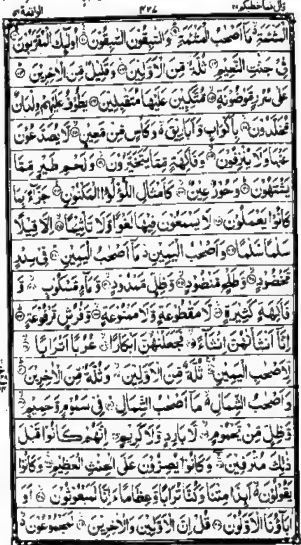 قال فما خطبكم ٢٧ ٤٣٧ الواقعة ٥٦
الْمَشْئَمَةِ مَا أَصْحٰبُ الْمَشْئَمَةِ وَالسّٰبِقُونَ السّٰبِقُونَ أُولٰئِكَ الْمُقَرَّبُونَ
فِي جَنّٰتِ النَّعِيمِ ثُلَّةٌ مِّنَ الْأَوَّلِينَ وَقَلِيلٌ مِّنَ الْآخِرِينَ
عَلٰى سُرُرٍ مَّوْضُونَةٍ مُّتَّكِـِٕينَ عَلَيْهَا مُتَقٰبِلِينَ يَطُوفُ عَلَيْهِمْ وِلْدَانٌ
مُّخَلَّدُونَ بِأَكْوَابٍ وَّأَبَارِيقَ وَكَأْسٍ مِّن مَّعِينٍ لَّا يُصَدَّعُونَ
عَنْهَا وَلَا يُنزِفُونَ وَفَاكِهَةٍ مِّمَّا يَتَخَيَّرُونَ وَلَحْمِ طَيْرٍ مِّمَّا
يَشْتَهُونَ وَحُورٌ عِينٌ كَأَمْثَالِ اللُّؤْلُؤِ الْمَكْنُونِ جَزَاءً بِمَا
كَانُوا يَعْمَلُونَ لَا يَسْمَعُونَ فِيهَا لَغْوًا وَّلَا تَأْثِيمًا إِلَّا قِيلًا
سَلٰمًا سَلٰمًا وَأَصْحٰبُ الْيَمِينِ مَا أَصْحٰبُ الْيَمِينِ فِي سِدْرٍ
مَّخْضُودٍ وَّطَلْحٍ مَّنضُودٍ وَّظِلٍّ مَّمْدُودٍ وَّمَاءٍ مَّسْكُوبٍ وَّ
فَاكِهَةٍ كَثِيرَةٍ لَّا مَقْطُوعَةٍ وَّلَا مَمْنُوعَةٍ وَّفُرُشٍ مَّرْفُوعَةٍ
إِنَّا أَنشَأْنٰهُنَّ إِنشَاءً فَجَعَلْنٰهُنَّ أَبْكَارًا عُرُبًا أَتْرَابًا
لِّأَصْحٰبِ الْيَمِينِ ثُلَّةٌ مِّنَ الْأَوَّلِينَ وَثُلَّةٌ مِّنَ الْآخِرِينَ
وَأَصْحٰبُ الشِّمَالِ مَا أَصْحٰبُ الشِّمَالِ فِي سَمُومٍ وَّحَمِيمٍ
وَّظِلٍّ مِّن يَّحْمُومٍ لَّا بَارِدٍ وَّلَا كَرِيمٍ إِنَّهُمْ كَانُوا قَبْلَ
ذٰلِكَ مُتْرَفِينَ وَكَانُوا يُصِرُّونَ عَلَى الْحِنثِ الْعَظِيمِ وَكَانُوا
يَقُولُونَ أَئِذَا مِتْنَا وَكُنَّا تُرَابًا وَّعِظَامًا ءَإِنَّا لَمَبْعُوثُونَ أَوَ
اٰبَاؤُنَا الْأَوَّلُونَ قُلْ إِنَّ الْأَوَّلِينَ وَالْآخِرِينَ لَمَجْمُوعُونَ